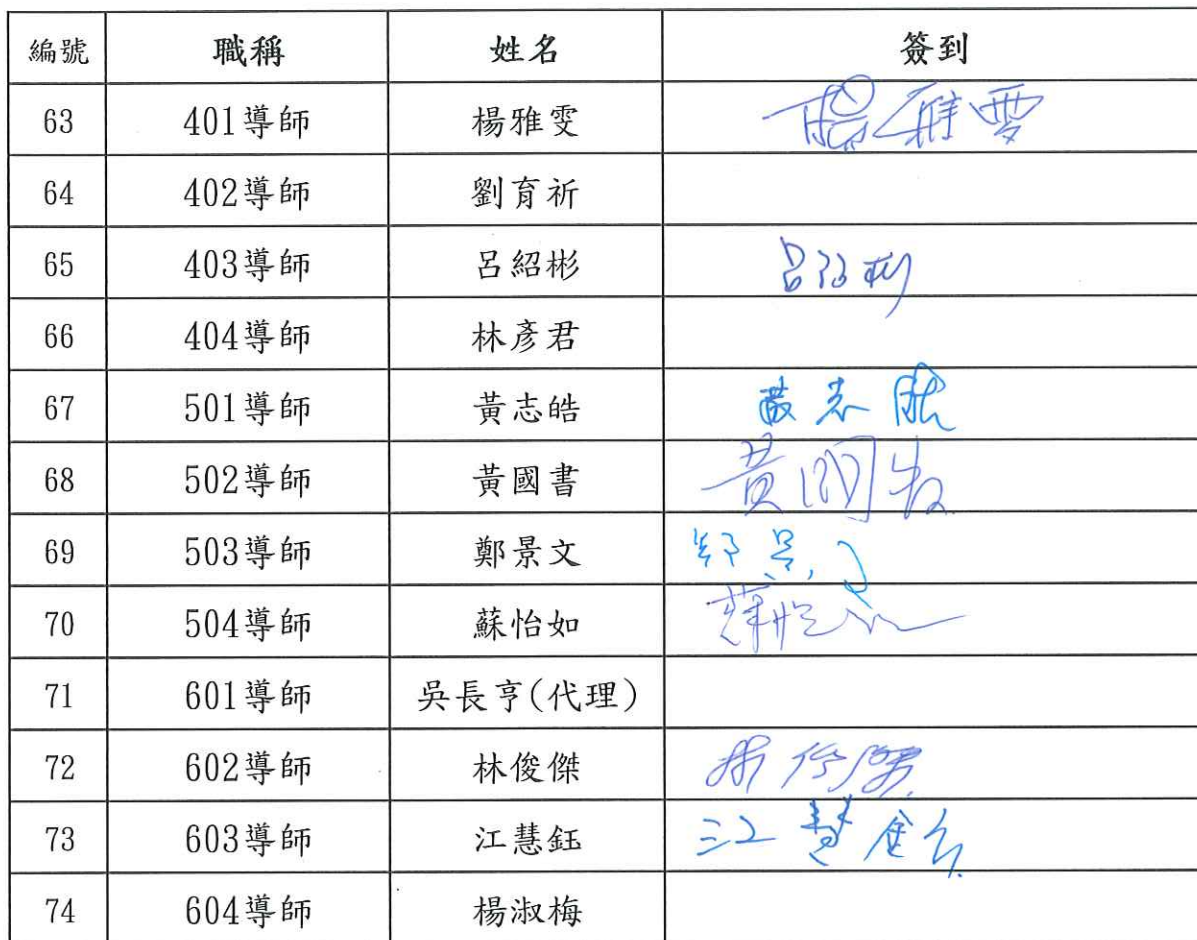 編號 職稱 姓名 簽到
63 401導師 楊雅雯 楊雅雯
64 402導師 劉育祈
65 403導師 呂紹彬 呂紹彬
66 404導師 林彥君
67 501導師 黃志皓 黃志皓
68 502導師 黃國書 黃國書
69 503導師 鄭景文 鄭景文
70 504導師 蘇怡如 蘇怡如
71 601導師 吳長亨(代理)
72 602導師 林俊傑 林俊傑
73 603導師 江慧鈺 江慧鈺
74 604導師 楊淑梅